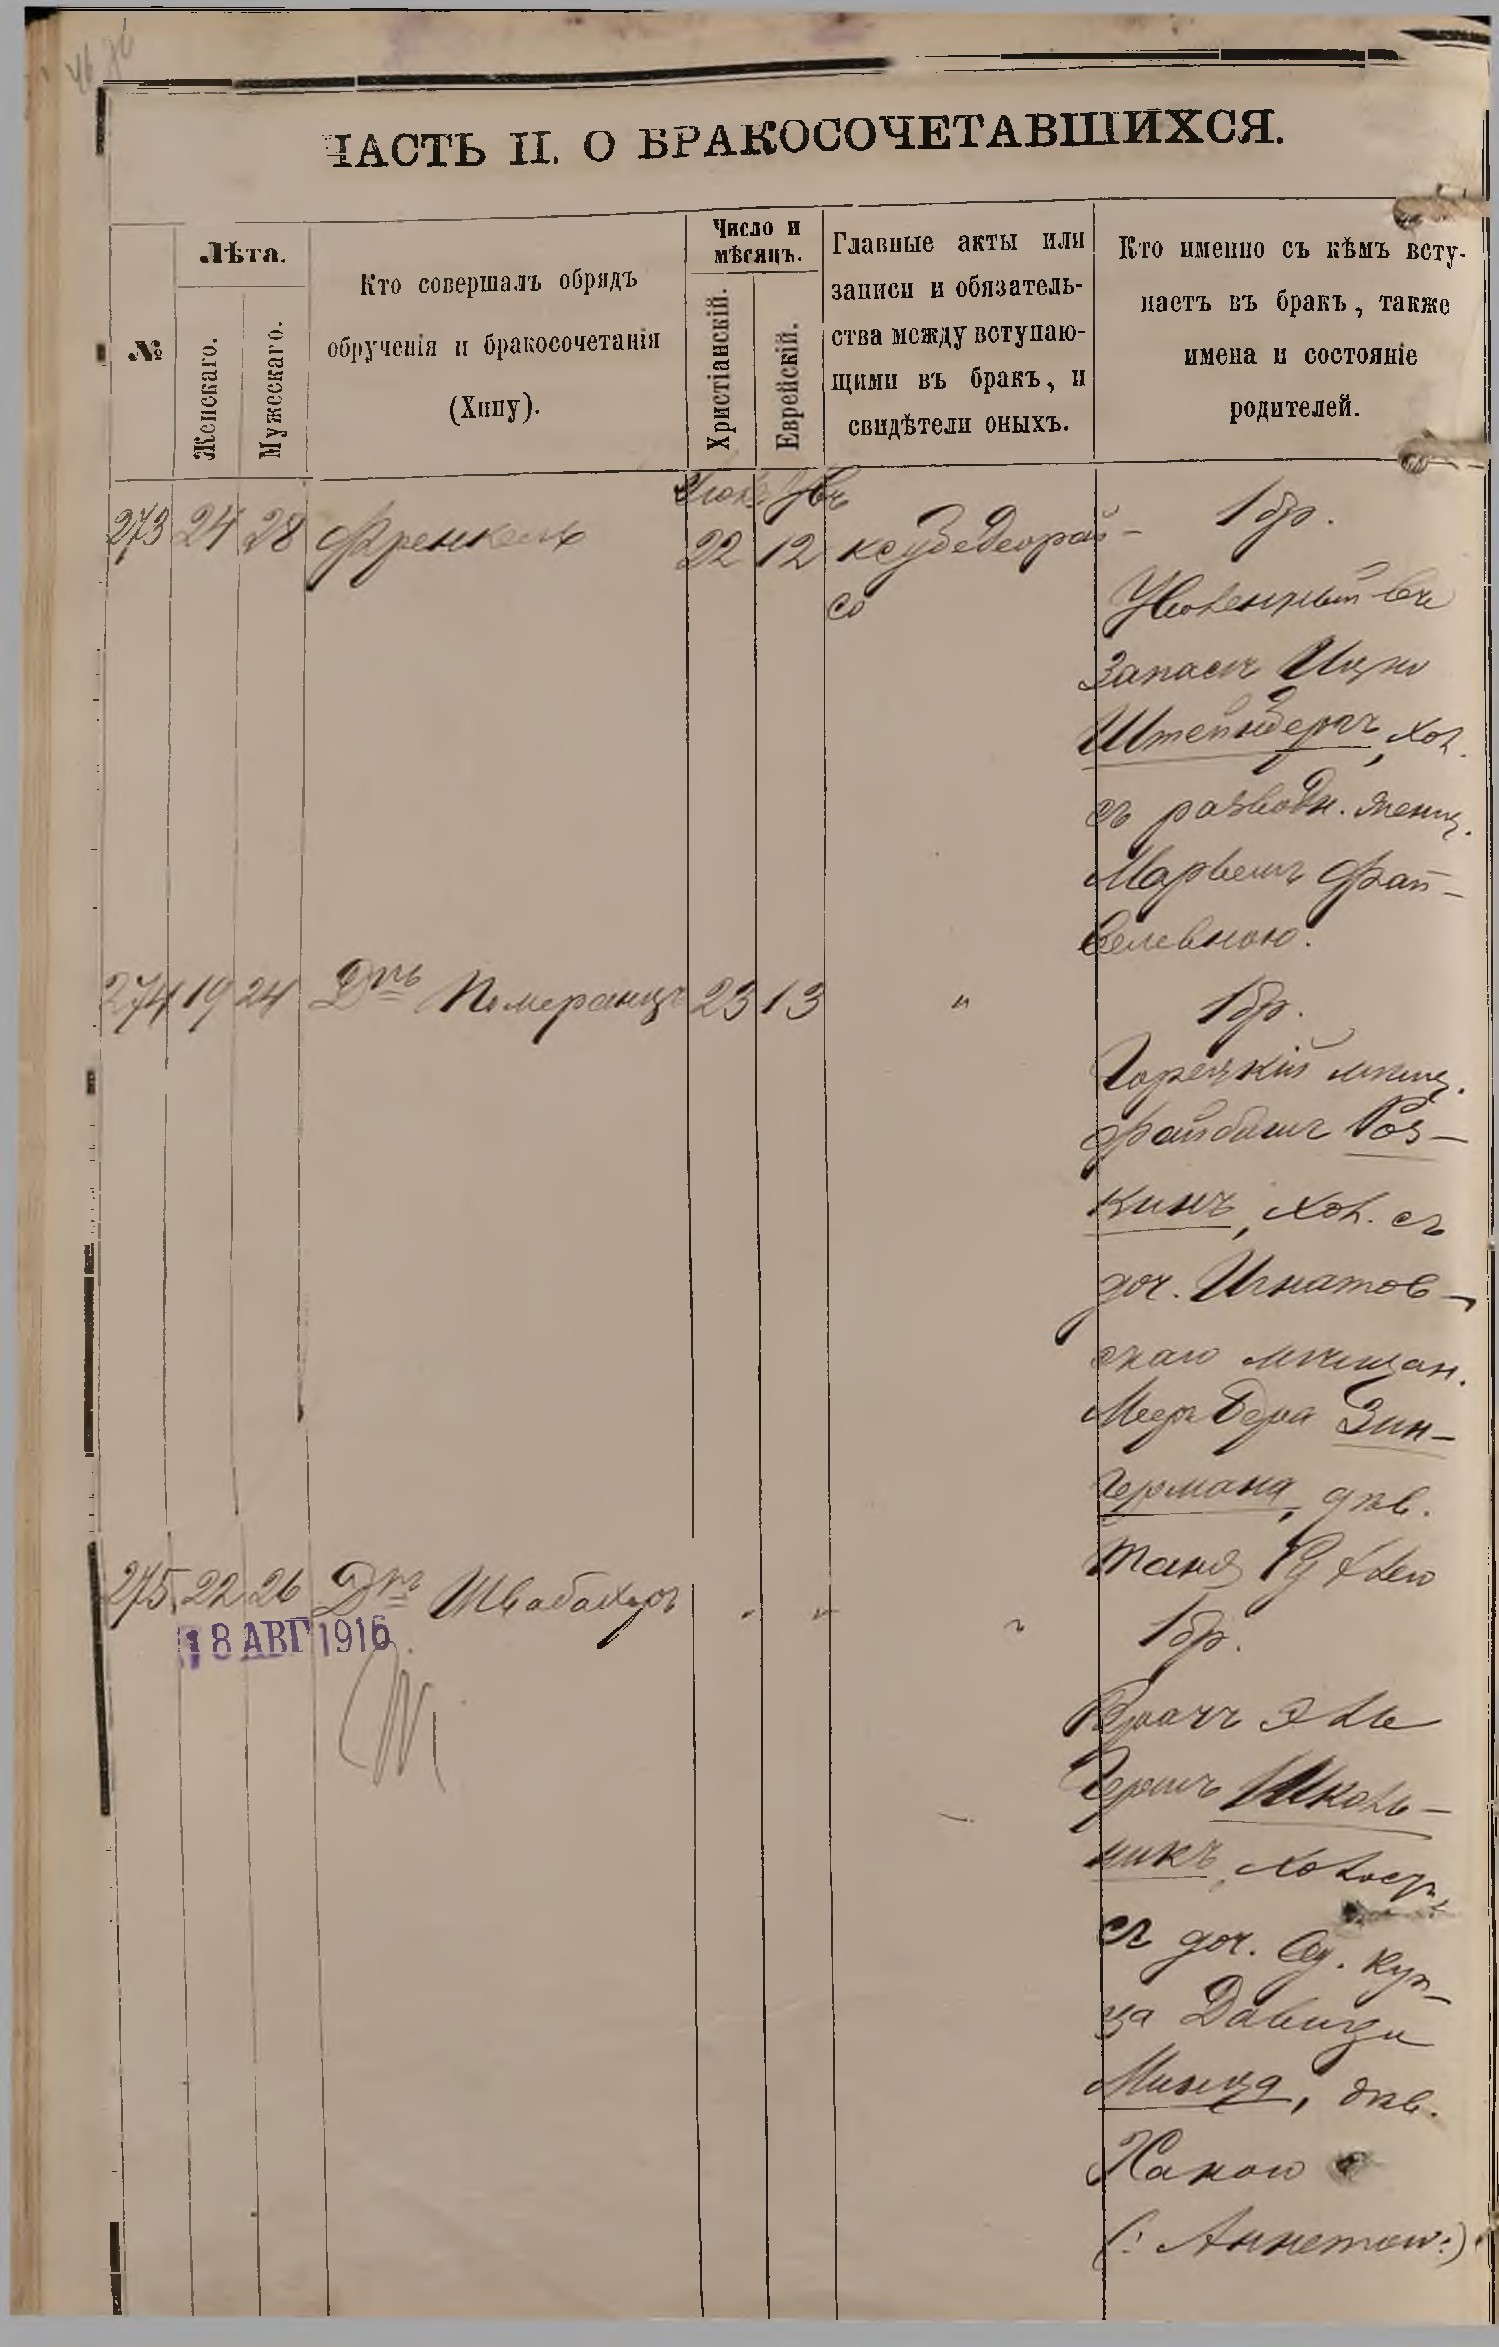 ЧАСТЬ II. О БРАКОСОЧЕТАВШИХСЯ.
№
Лѣта.
Женскаго.
Мужескаго.
Кто совершалъ обрядъ
обрученія и бракосочетанія
(Хипу).
Число и
мѣсяцъ.
Христіанскій.
Еврейскій.
Главные акты или
записи и обязатель-
ства между вступаю-
щими въ бракъ, и
свидѣтели оныхъ.
Кто именно съ кѣмъ всту-
паетъ въ бракъ, также
имена и состояніе
родителей.
273 24 28 Френкель 22 12
1 бр.
Уволенный въ
запасъ Ицко
Штейнбергъ, хол.
съ разводн. женщ.
Фай-
велевною.
274 19 24 Дръ Померанцъ 23 13 "
1 бр.
Горецкій мѣщ.
Файбишъ Роз-
кинъ, хол. съ
доч. Игнатов-
скаго мѣщан.
Меера Бера Зин-
германа, дѣв.
1 бр.
275 22 26 Дръ Швабахеръ " " "
18 АВГ 1916
Врачъ Эле
Гершъ Школь-
никъ, холост.
съ доч. Од. куп-
ца Давида
Минца, дѣв.
Ханою
(: Аннетою :)